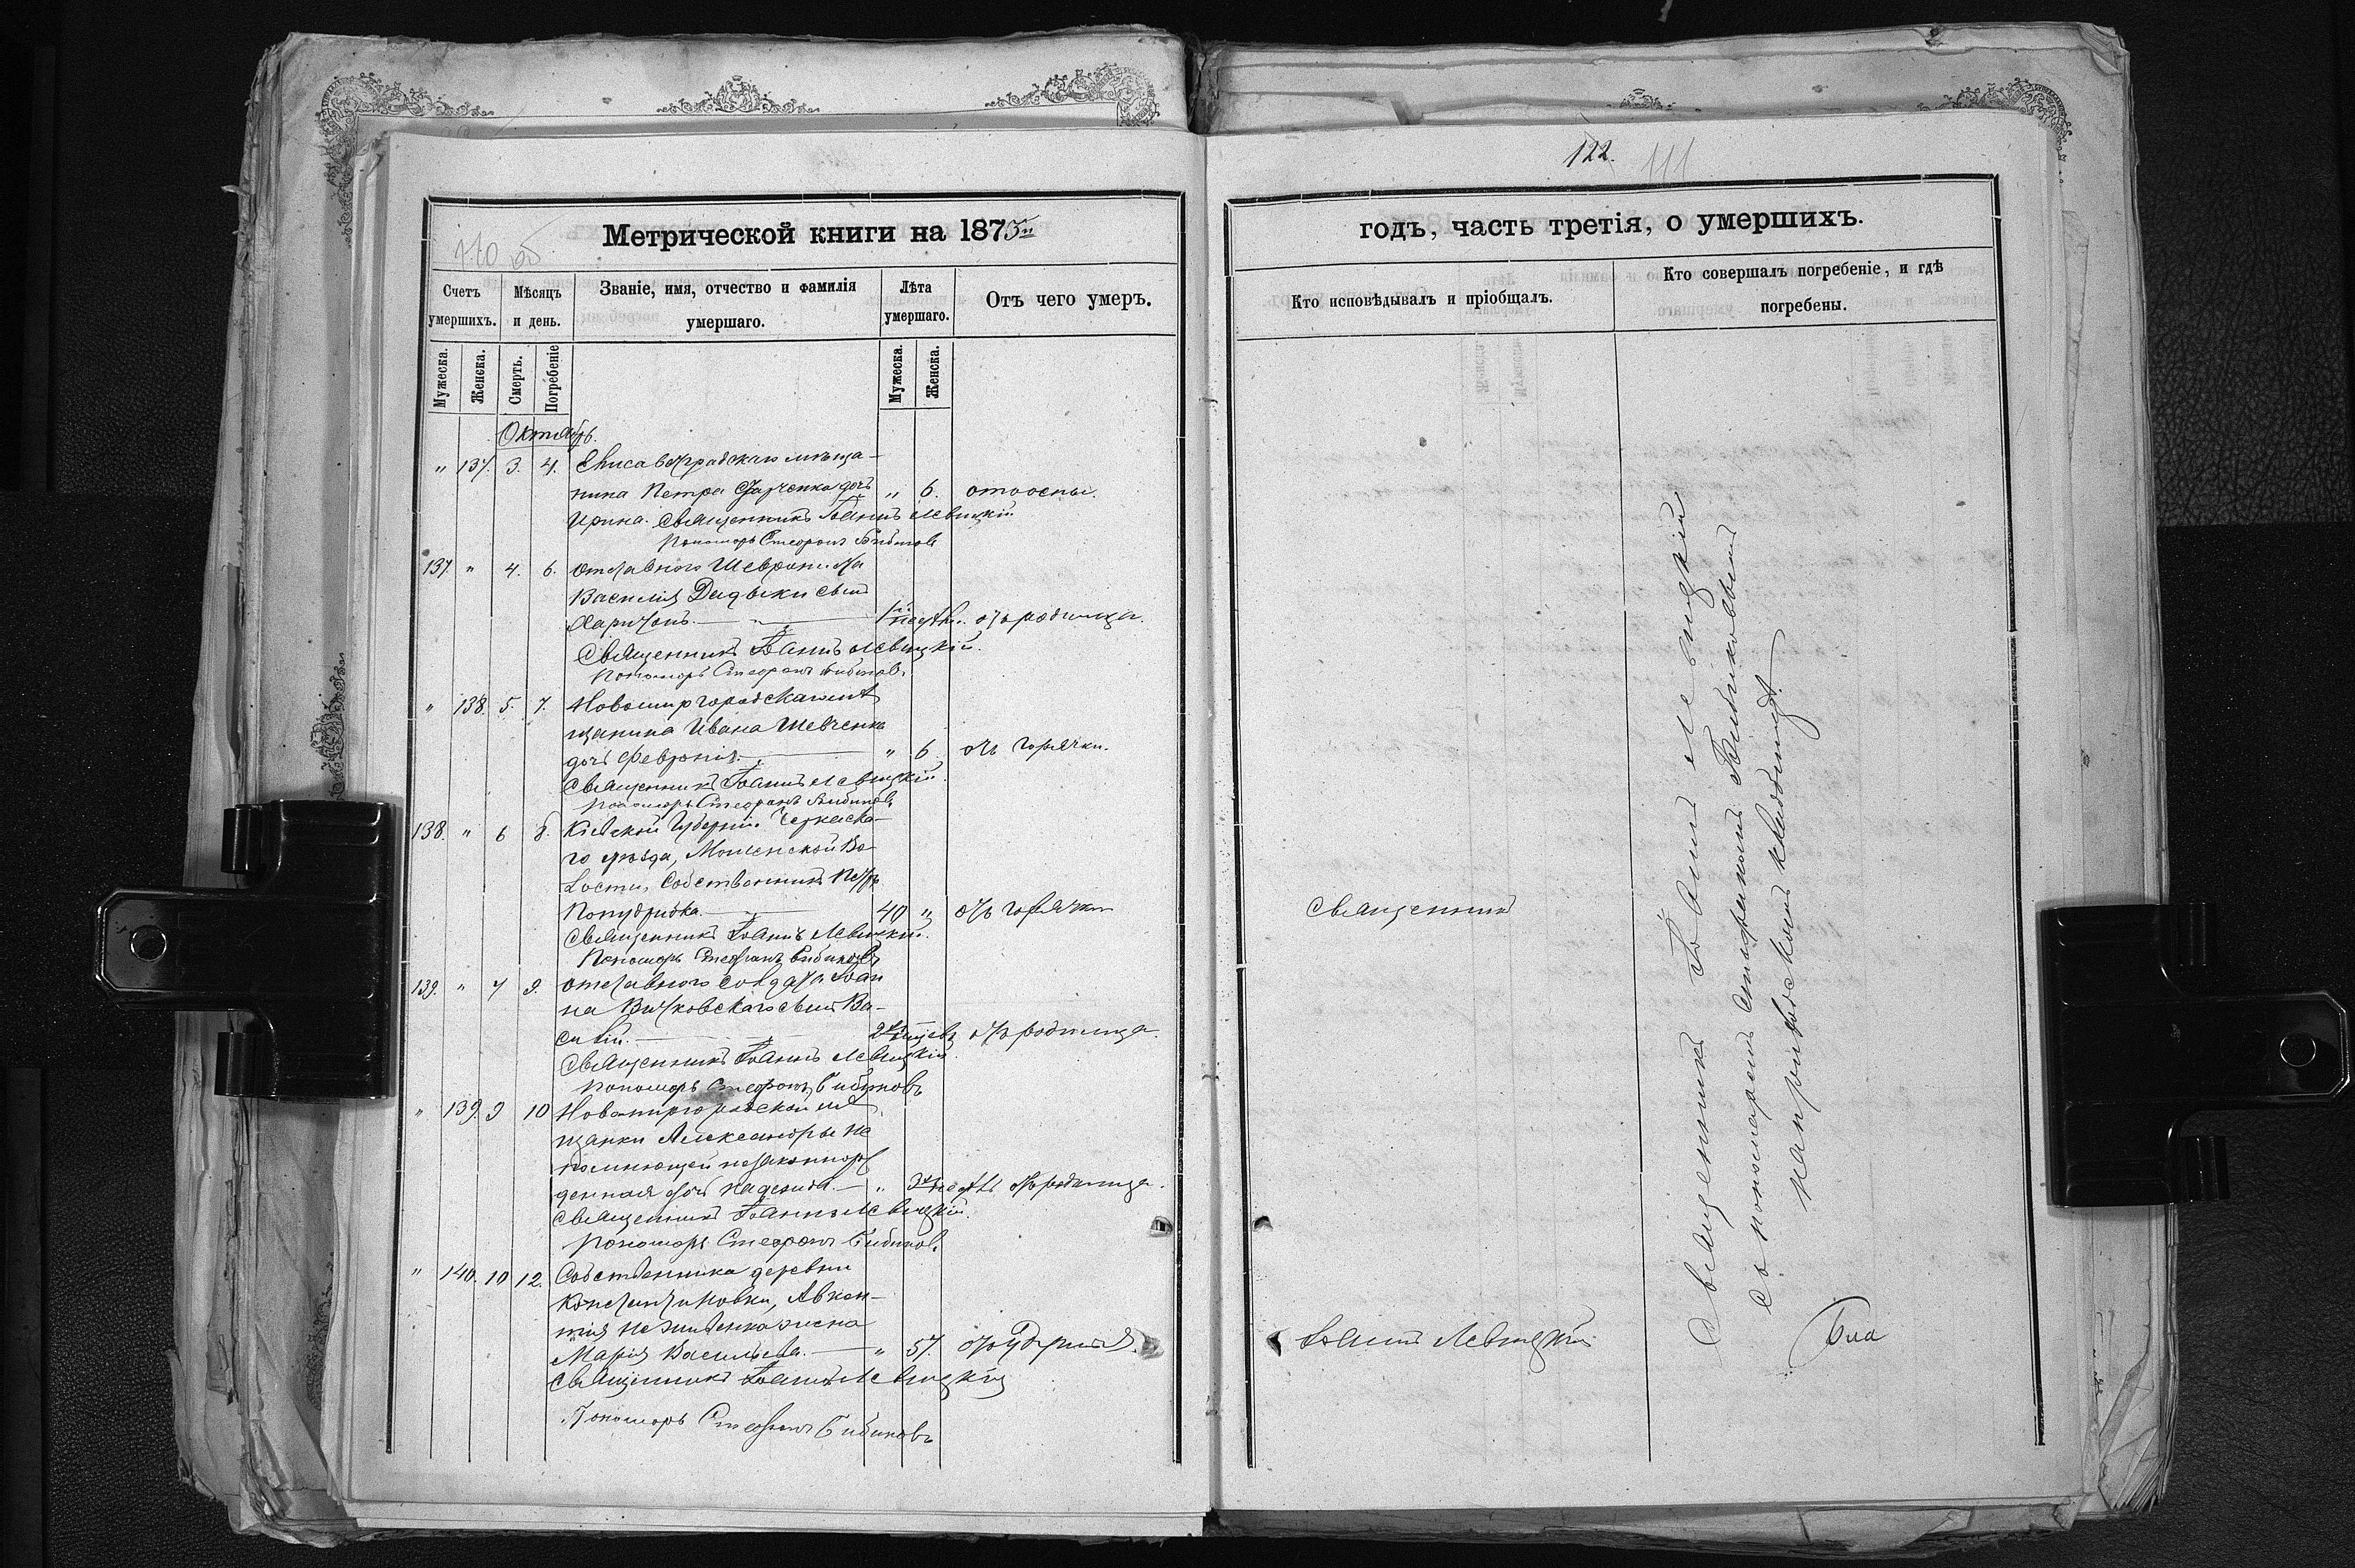 122.
111
Метрической книги на 1875
годъ, часть третія, о умершихъ.
110 об
Счетъ умершихъ.
Мѣсяцъ и день.
Званіе, имя, отчество и фамилія умершаго.
Лѣта умершаго.
Отъ чего умеръ.
Кто исповѣдывалъ и пріобщалъ.
Кто совершалъ погребеніе, и гдѣ погребены.
Мужеска.
Женска.
Смерть.
Погребеніе
Мужеска.
Женска.
Октябрь.
" 137. 3. 4. Елисаветградскаго мѣща-
нина Петра дочь " 6. отъ оспы.
Ирина. Священникъ Іоаннъ Левицкій
Пономарь Стефанъ Бибиковъ
137. " 4. 6. отставного
Василія сынъ
Харитонъ. 1 недѣл. отъ родимца.
Священникъ Іоаннъ Левицкій.
Пономарь Стефанъ Бибиковъ.
" 138. 5. 7. Новомиргородскаго мѣ
щанина Ивана Шевченка
дочь Февронія. " 6 отъ горячки.
Священникъ Іоаннъ Левицкій.
Пономарь Стефанъ Бибиковъ
138. " 6 8. Кіевской Губерніи Черкаска-
го уѣзда, Мошенской Во-
лости, Собственникъ Петръ
40 " отъ горячки
Священникъ Іоаннъ Левицкій.
Пономарь Стефанъ Бибиковъ
139. " 7 9. отставного Солдата Іоан
на сынъ Ва-
силій. 2 отъ родимца.
Священникъ Іоаннъ Левицкій.
Пономарь Стефанъ Бибиковъ
" 139. 9 10 Новомиргородской мѣ
щанки Александры Не
помнющей незаконнорож
денная дочь Надежда. " 3 недѣль отъ родимца.
Священникъ Іоаннъ Левицкій.
Пономарь Стефанъ Бибиковъ.
" 140. 10 12. Собственника деревни
Константиновки, Авксен-
тія жена
Марія Васильева. " 57. отъ удушья.
Священникъ Іоаннъ Левицкій
Пономарь Стефанъ Бибиковъ
Священникъ
Іоаннъ Левицкій
Священникъ Іоаннъ Левицкій
съ пономаремъ Стефаномъ Бибиковымъ
на приходскомъ кладбищѣ.